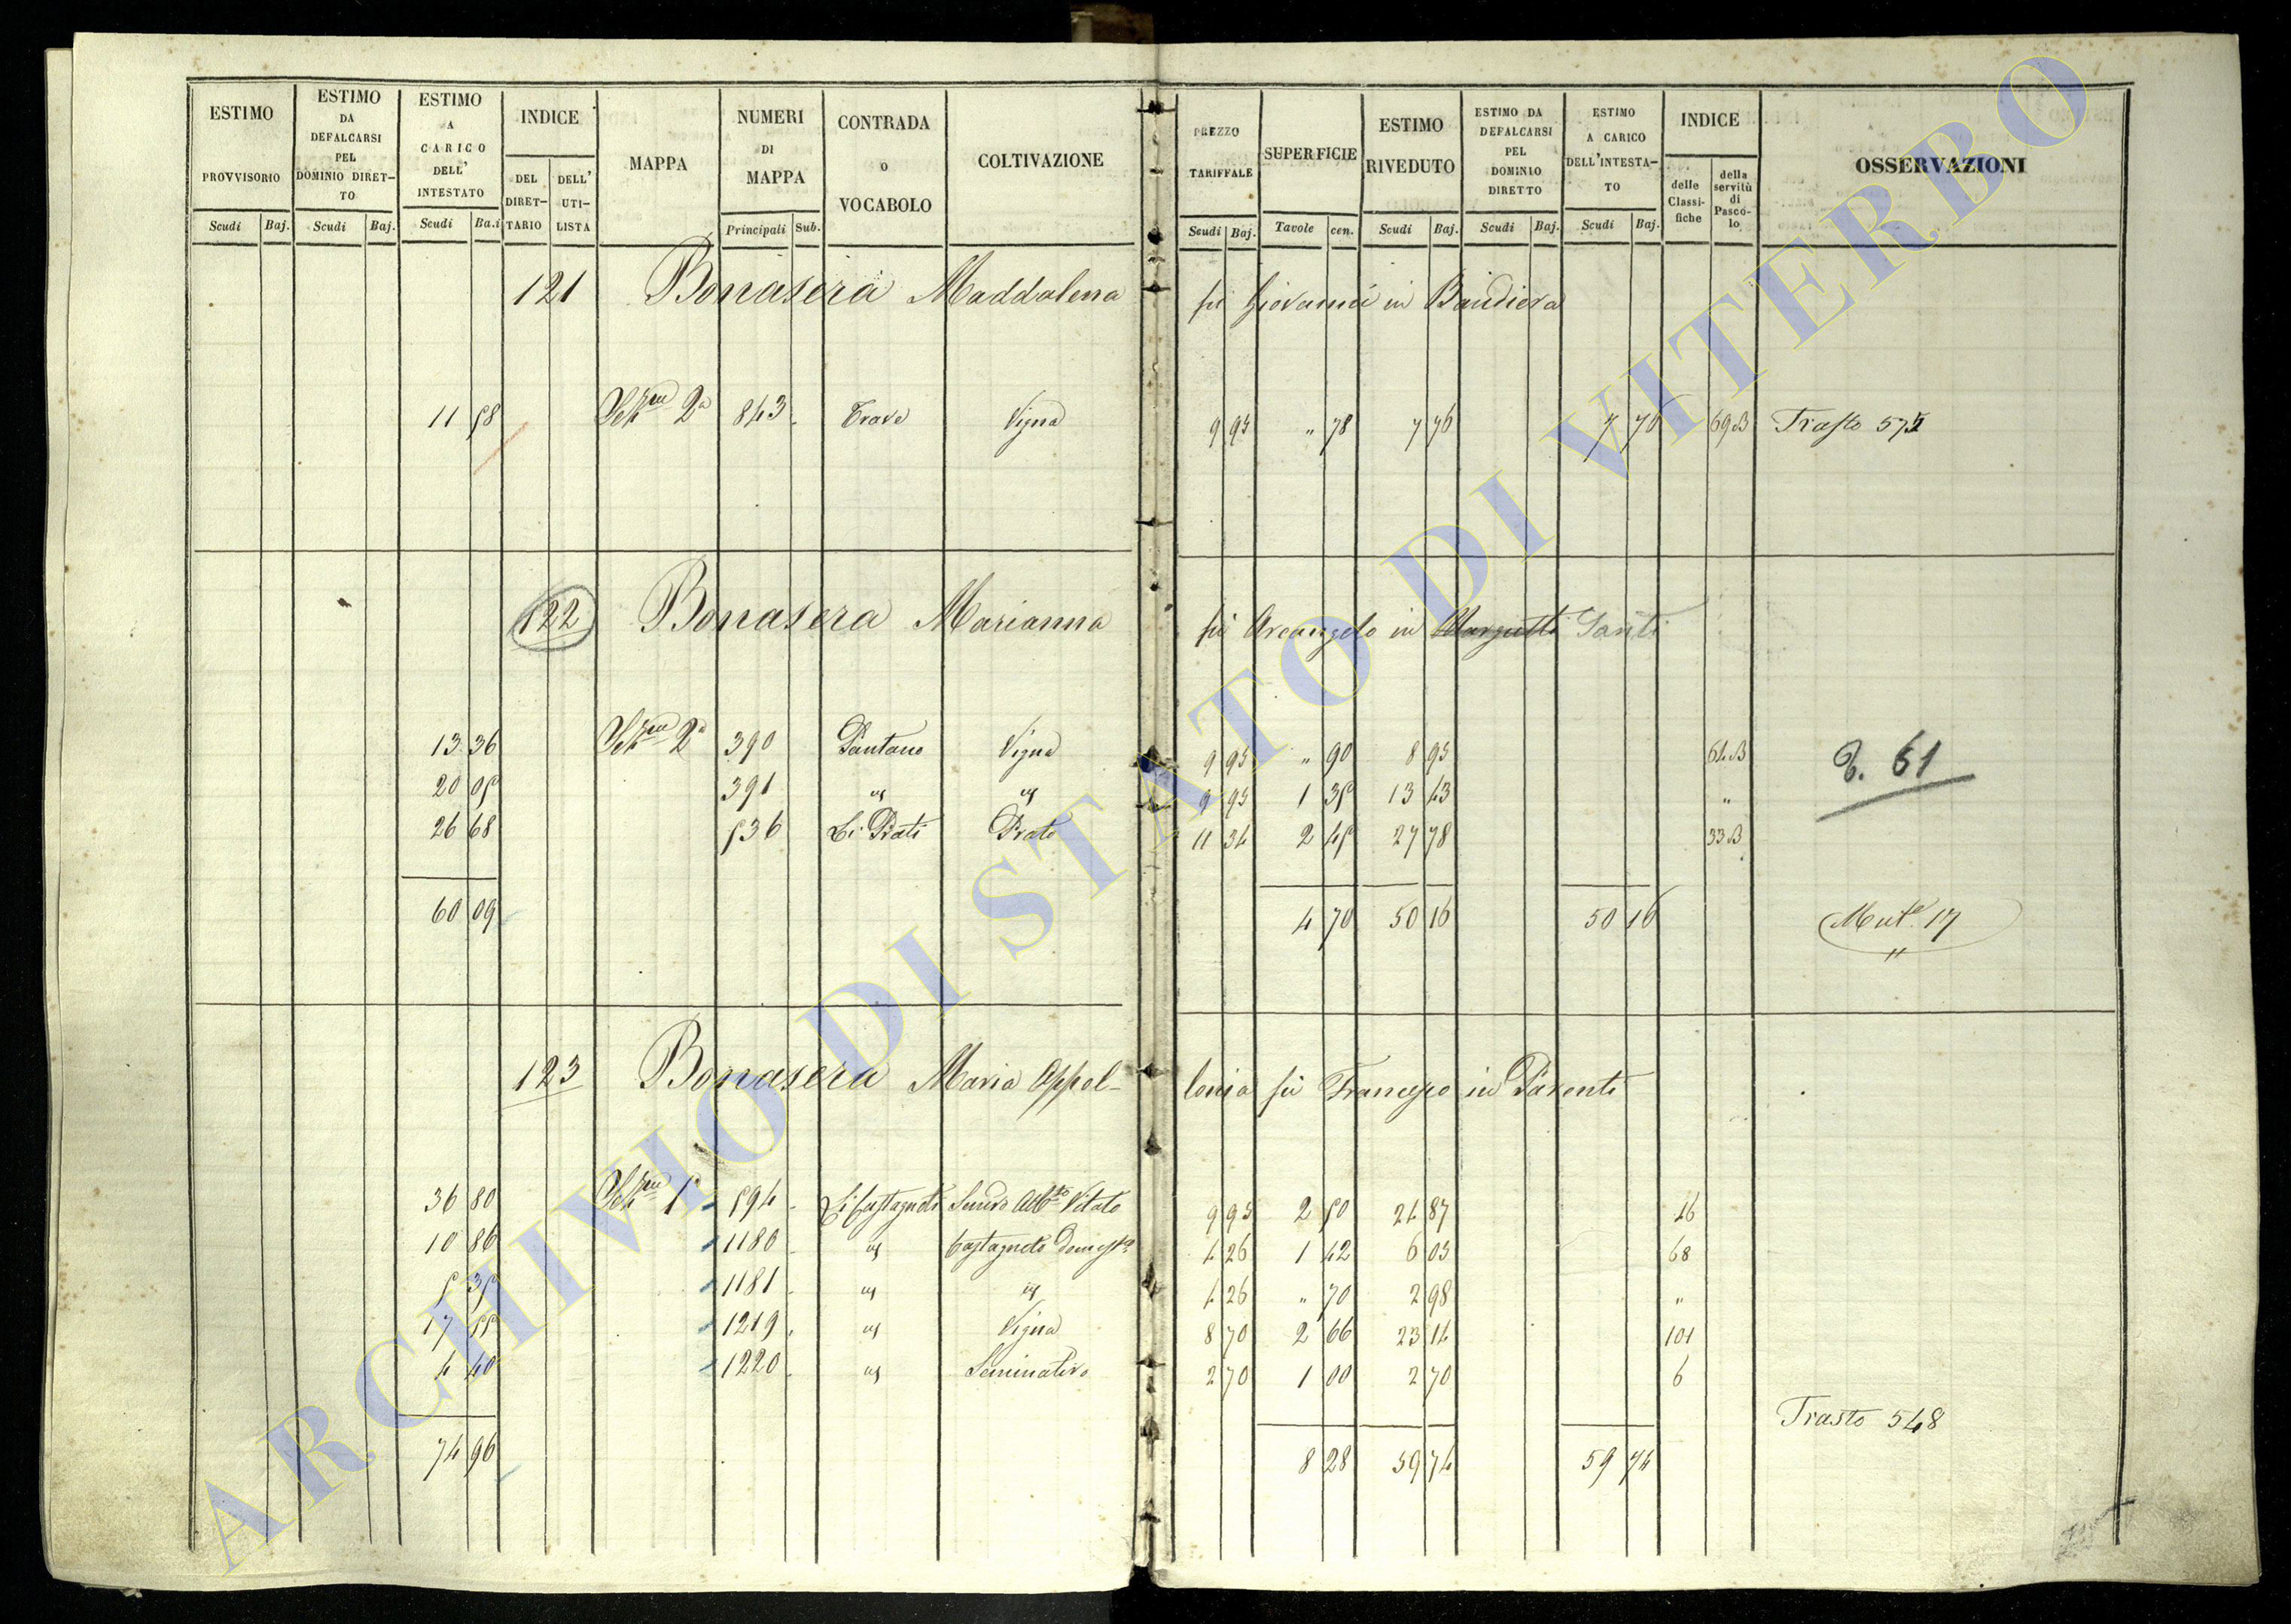 ESTIMO PROVVISORIO
ESTIMO DA DEFALCARSI PEL DOMINIO DIRET-TO
ESTIMO A CARICO DELL' INTESTATO
INDICE
DEL DIRET-TARIO
DELL' UTI-LISTA
MAPPA
NUMERI DI MAPPA
CONTRADA o VOCABOLO
COLTIVAZIONE
PREZZO TARIFFALE
SUPERFICIE
ESTIMO RIVEDUTO
ESTIMO DA DEFALCARSI PEL DOMINIO DIRETTO
ESTIMO A CARICO DELL'INTESTA-TO
INDICE
delle Classi-fiche
della servitù di Pasco-lo
OSSERVAZIONI
Scudi Baj. Scudi Baj. Scudi Ba.i Principali Sub. Scudi Baj. Tavole cen. Scudi Baj. Scudi Baj. Scudi Baj.
121 Bonasera Maddalena fu Giovanni in Bandiera
11 58 2a 843 Trove Vigna 9 95 " 78 7 76 7 76 69B Trasto 575
122 Bonasera Marianna fu Arcangelo in Margutti Santi
13 36 2a 390 Pantano Vigna 9 95 " 90 8 95 64B
20 05 391 " " 9 95 1 35 13 43 "
26 68 536 Li Prati Prato 11 34 2 45 27 78 33B
61
60 09 4 70 50 16 50 16 Mut.e 17
123 Bonasera Maria Appol-lonia fu Francesco in Parenti
36 80 594 Li Castagneti Semvo Albto Vitato 9 95 2 50 24 87 16
10 86 1180 " Castagneto Domesto 4 26 1 42 6 05 68
5 35 1181 " " 4 26 " 70 2 98 "
17 55 1219 " Vigna 8 70 2 66 23 14 101
4 40 1220 " Seminativo 2 70 1 00 2 70 6
Trasto 548
74 96 8 28 59 74 59 74
ARCHIVIO DI STATO DI VITERBO